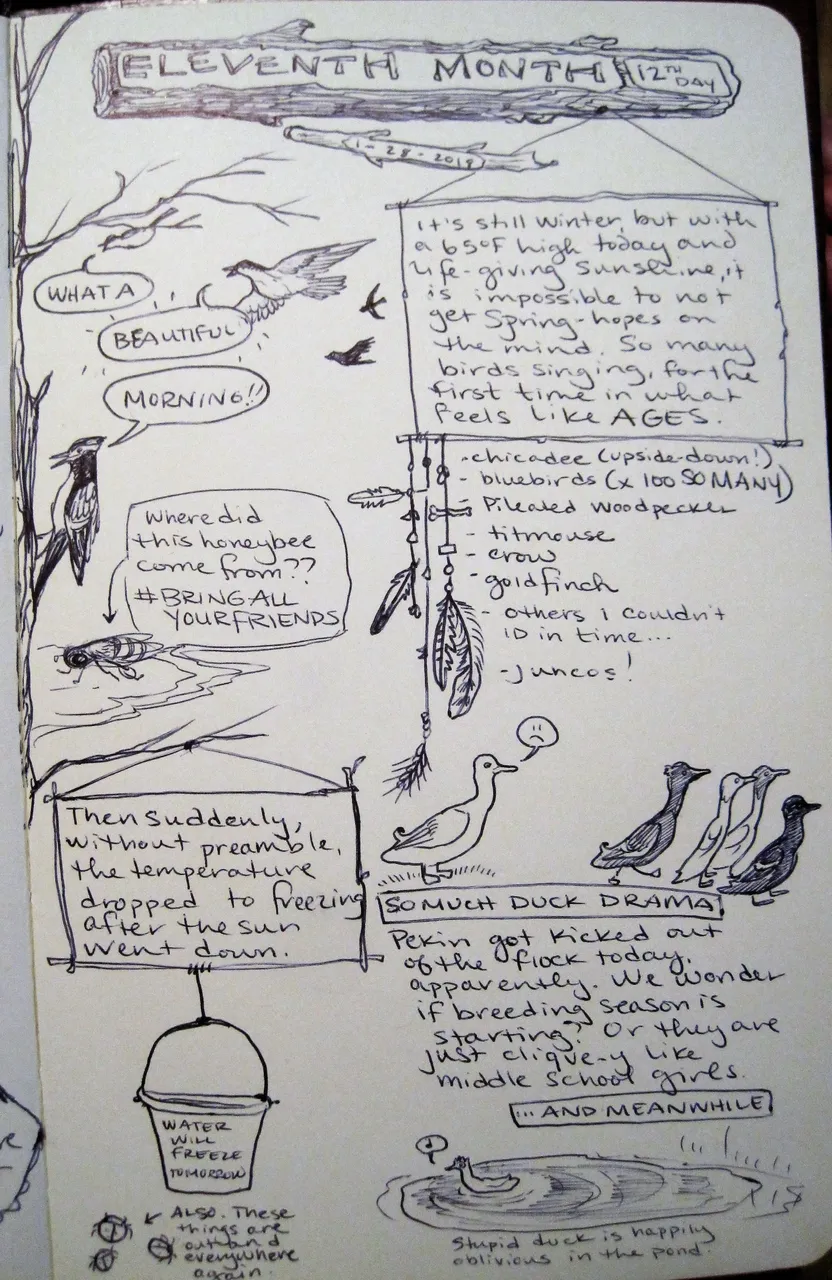 ELEVENTH MONTH
12TH DAY
1-28-2019
WHAT A
BEAUTIFUL
MORNING!!
It's still winter, but with
a 65°F high today and
life-giving sunshine, it
is impossible to not
get Spring-hopes on
the mind. So many
birds singing, for the
first time in what
feels like AGES.
- chicadee (upside-down!)
- bluebirds (x 100 SO MANY)
- Pileated woodpecker
- titmouse
- crow
- goldfinch
- others i couldn't
ID in time...
- juncos!
Where did
this honeybee
come from??
#BRINGALL
YOURFRIENDS
Then suddenly,
without preamble,
the temperature
dropped to freezing
after the sun
went down.
WATER
WILL
FREEZE
TOMORROW
ALSO. These
things are
out and
everywhere
again.
SO MUCH DUCK DRAMA
Pekin got kicked out
of the flock today,
apparently. We wonder
if breeding season is
starting? Or they are
just clique-y like
middle school girls.
...AND MEANWHILE
Stupid duck is happily
oblivious in the pond.